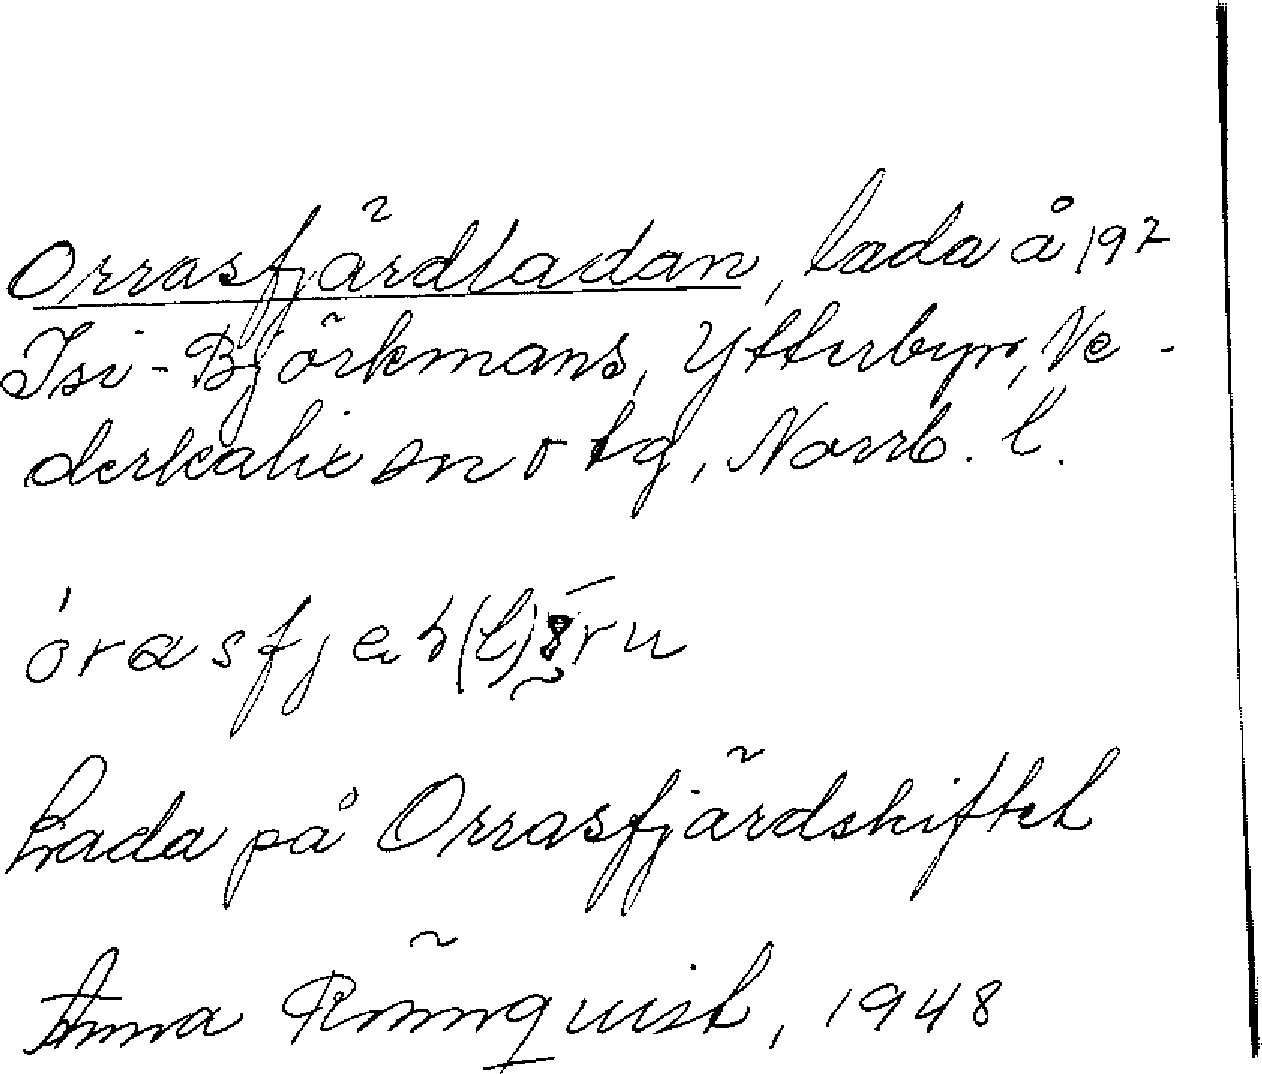 Orrasfjärdladan, lada å 19²
Isi-Björkmans, Ytterbyn, Ne-
derkalix sn o tg, Norrb. l.
Lada på Orrasfjärdskiftet
Anna Rönnquist, 1948